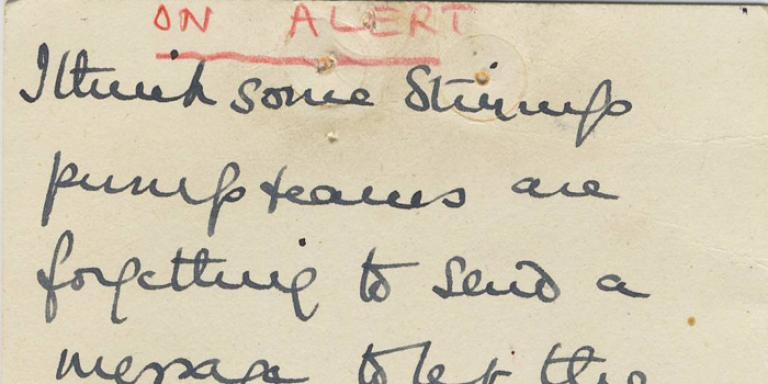 ON ALERT
I think some Stirrup
pump teams are
forgetting to send a
message to let the